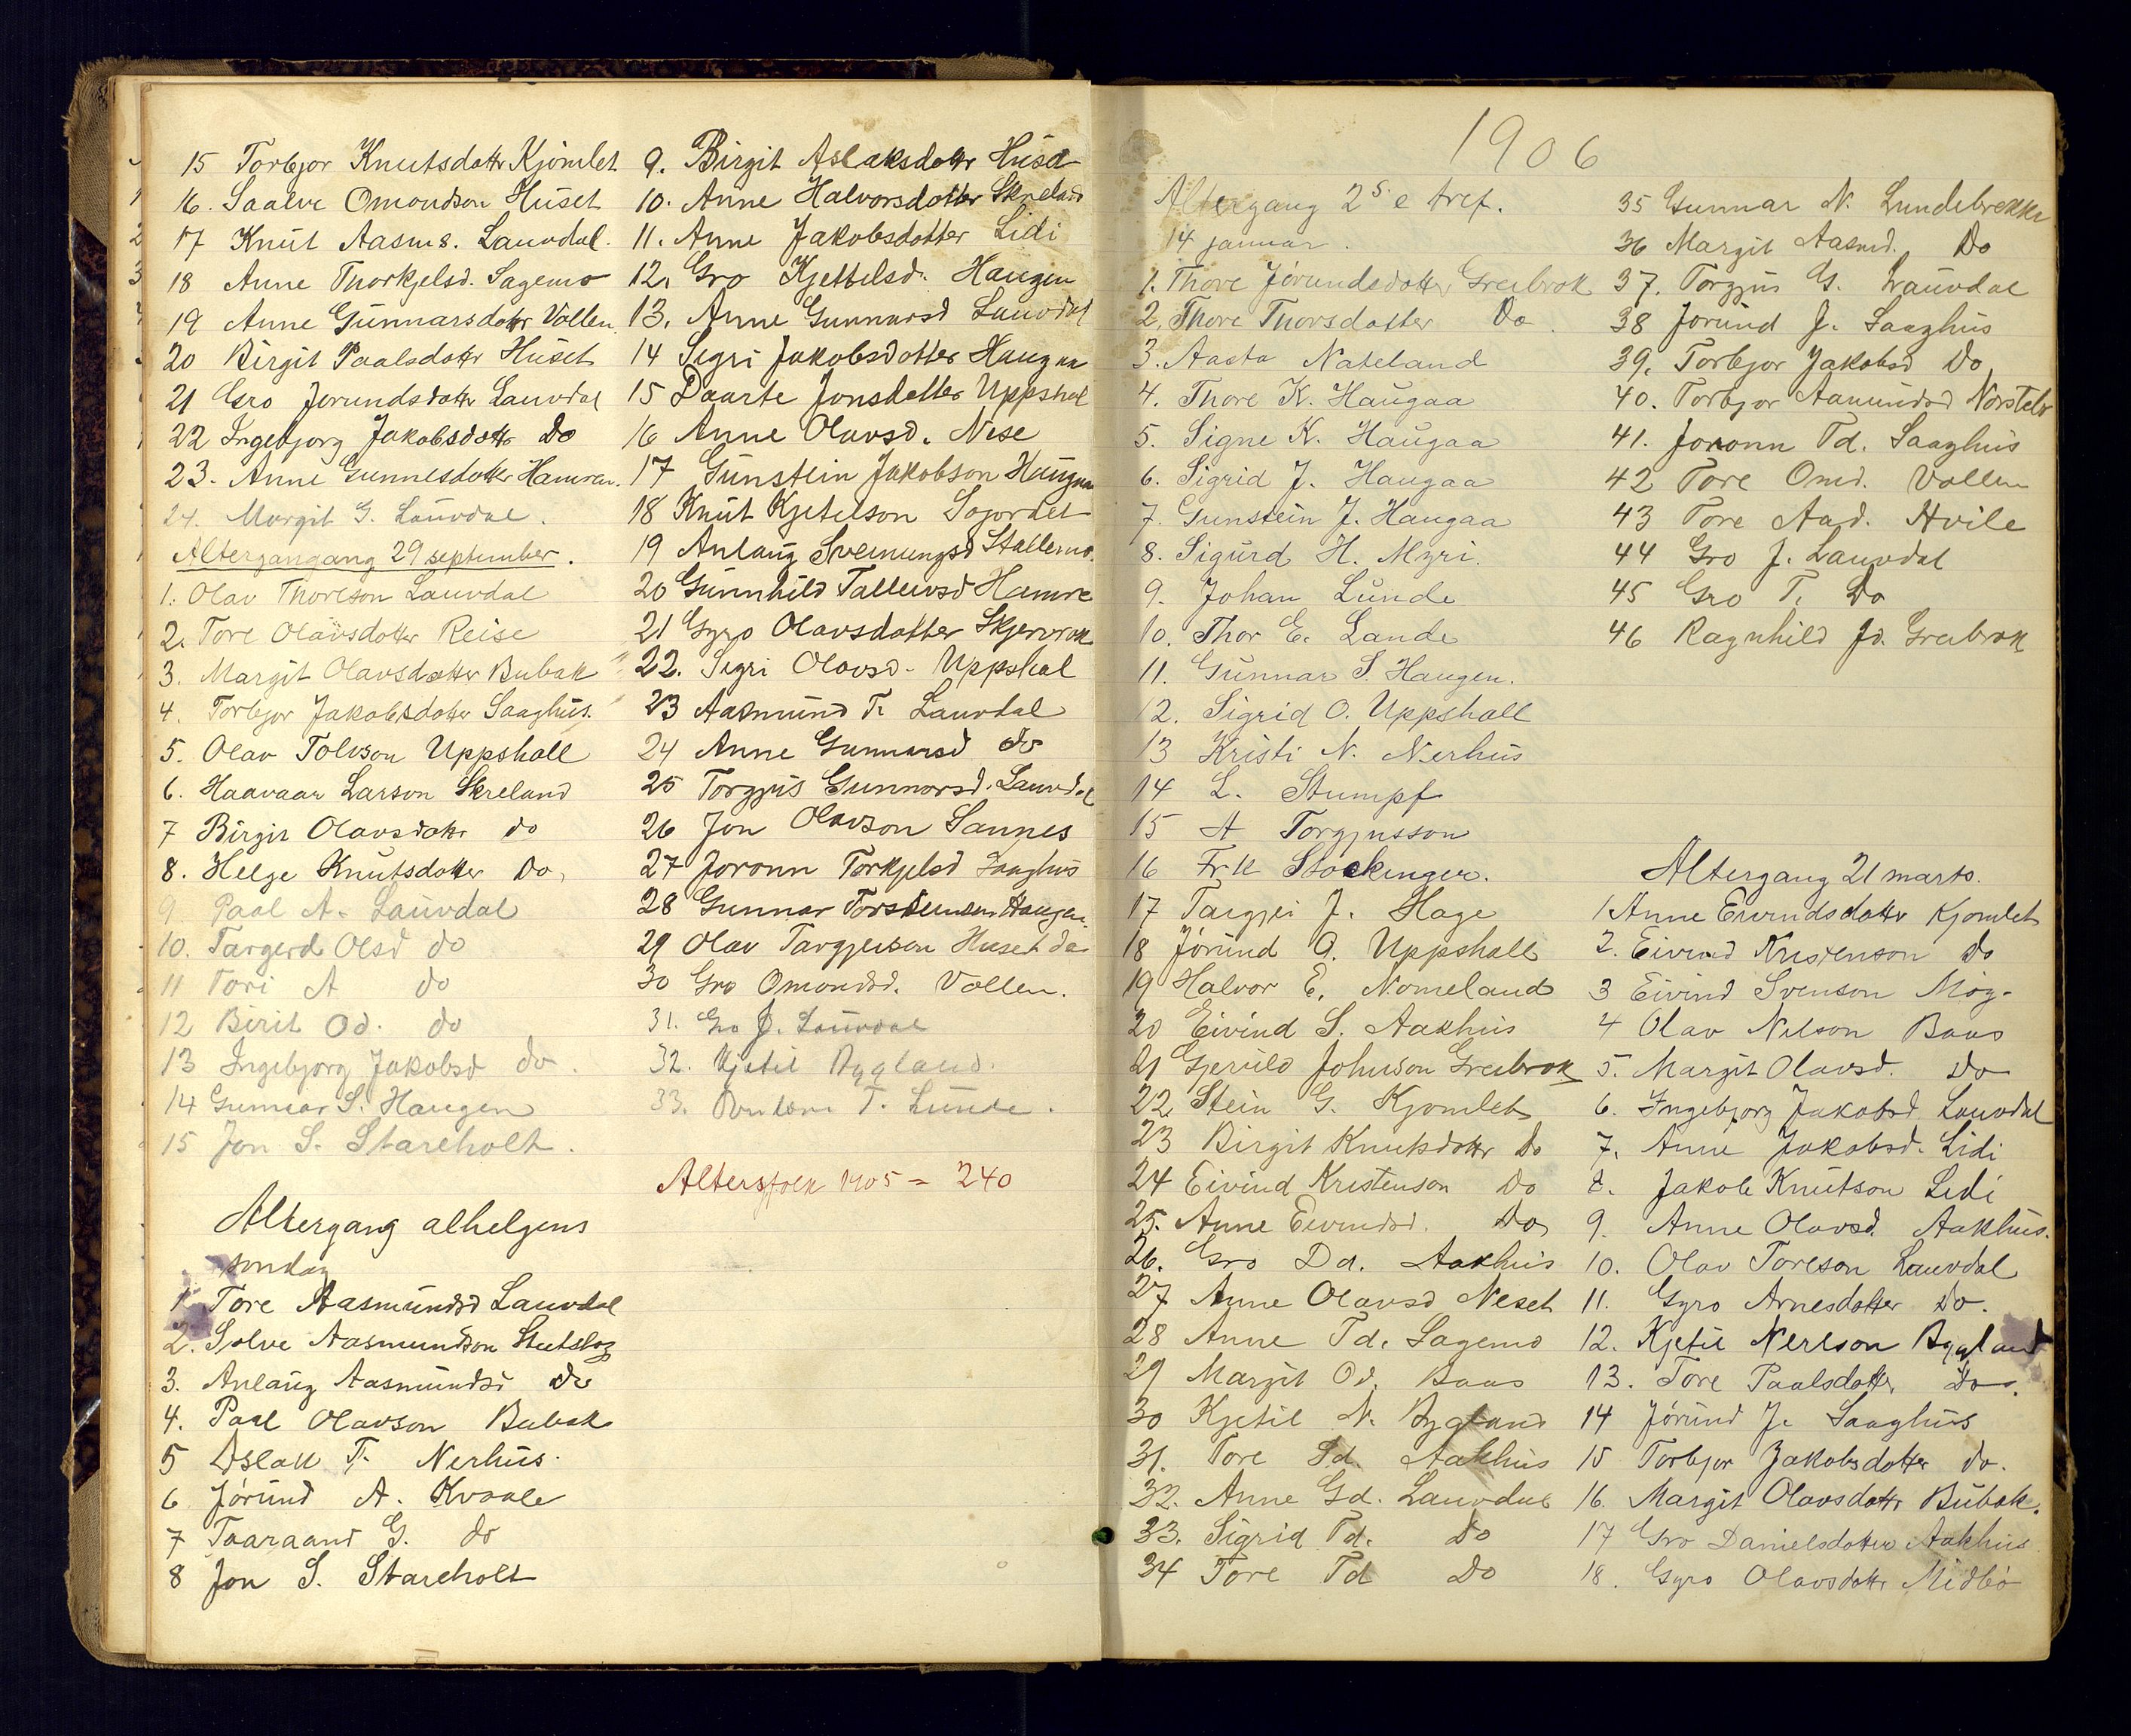 15 Torbjor Knutsdottr Kjomlet
16. Saalve Omondson Huset
17 Knut Aasms. Lauvdal.
18 Anne Thorkjelsd. Sagemo
19 Anne Gunnarsdottr Vollen.
20 Birgit Paalsdottr Huset
21 Gro Jorundsdottr Lauvdal
22 Ingebjorg Jakobsdottr Do
23. Anne Gunnesdotter Hamran.
24. Margit G. Lauvdal.
Altergangang 29 september.
1. Olav Thorleson Lauvdal
2. Tore Olavsdotter Reise
3. Margit Olavsdotter Bubak
4. Torbjor Jakobsdotter Saaghus.
5. Olav Tolvson Uppshall
6. Haavaar Larson Skreland
7 Birgit Olavsdottr do
8. Helge Knutsdotter Do,
9. Paal A. Lauvdal
10. Targerd Olsd do
11 Tori A do
12 Birit Od. do
13 Ingebjorg Jakobsd do.
14 Gunnar S. Haugen
15 Jon S. Stareholt.
Altergang alhelgens
sondag
1. Tore Aasmundsd Lauvdal
2. Solve Aasmundson
3. Anlaug Aasmundsd Do
4. Paal Olavson Bubak
5 Aslak T. Nerhus.
6 Jórund A. Kvaale
7 Taaraand G. do
8 Jon S. Stareholt
9. Birgit Aslaksdottr
10. Anne Halvorsdotter Skreland
11. Anne Jakobsdotter Lidi
12. Gro Kjettelsd. Haugen
13. Anne Gunnarsd Lauvdal
14 Sigri Jakobsdotter Haugaa
15 Daarte Jonsdotter Uppshal
16 Anne Olavsd. Nese
17 Gunstein Jakobson Haugaa
18 Knut Kjetelson
19 Anlaug Sveinungsd Stallemo.
20 Gunnhild Tallevsd Hamre
21 Gyro Olavsdotter
22. Sigri Olavsd. Uppshal
23 Aasmund T. Lauvdal
24 Anne Gunnarsd do
25 Torgjus Gunnarsd. Lauvdal
26 Jon Olavson Sannes
27 Joronn Torkjelsd Saaghus
28 Gunnar Torsteinson Haugen
29 Olav Targjerson Huset do
30 Gro Omondsd. Vollen.
31. Gro J. Lauvdal
32. Kjetil Bygland.
33. T. Lunde.
Altersfolk 1905 = 240
1906
Altergang 2s. e tref.
14 januar.
1. Thore Jórundsdotter Greibrok
2. Thore Thorsdotter Do.
3. Aasta Nateland
4. Thore K. Haugaa
5. Signe K. Haugaa
6. Sigrid J. Haugaa
7. Gunstein J. Haugaa
8. Sigurd H. Myri.
9. Johan Lunde
10. Thor E. Lande
11. Gunnar S. Haugen.
12. Sigrid O. Uppshall
13 Kristi N. Nerhus
14 L. Stumpf
15 A Torgjusson
16 Frk Stockinger.
17 Targjei J. Hage
18 Jórund O. Uppshall
19 Halvor E. Nomeland
20 Eivind S. Aakhus
21 Gjeruld Johnson Greibrok
22 Stein G. Kjomlet
23 Birgit Knutsdottr Do
24 Eivind Kristenson Do
25. Anne Eivindsd. Do
26. Gro Dd. Aakhus
27 Anne Olavsd Neset
28 Anne Td. Sagemo
29 Margit Od. Baas
30 Kjetil N. Bygland
31. Tore Sd. Aakhus
32. Anne Gd. Lauvdal
33. Sigrid Td. Do
34 Tore Td Do
35 Gunnar N. Lundebrekke
36 Margit Aasmd. Do
37. Torgjus G. Lauvdal
38 Jorund J. Saaghus
39. Torbjor Jakobsd Do
40. Torbjor Aamundsd
41. Joronn Td. Saaghus
42 Tore Omd. Vollen
43 Tore Aad. Hvile
44 Gro J. Lauvdal
45 Gro T. Do
46 Ragnhild Jd. Greibrok
Altergang 21 marts.
1 Anne Eivindsdottr Kjomlet
2. Eivind Kristenson Do
3 Eivind Svenson Moy.
4 Olav Nilson Baas
5. Margit Olavsd. Do
6. Ingebjorg Jakobsd Lauvdal
7. Anne Jakobsd. Lidi
8. Jakob Knutson Lidi
9. Anne Olavsd. Aakhus.
10. Olav Toreson Lauvdal
11. Gyro Arnesdotter Do.
12. Kjetil Nerison Bygland
13. Tore Paalsdotter Do.
14 Jórund J. Saaghus
15 Torbjor Jakobsdotter do.
16. Margit Olavsdottr Bubak.
17 Gro Danielsdotter Aakhus
18. Gyro Olavsdottr Midbó